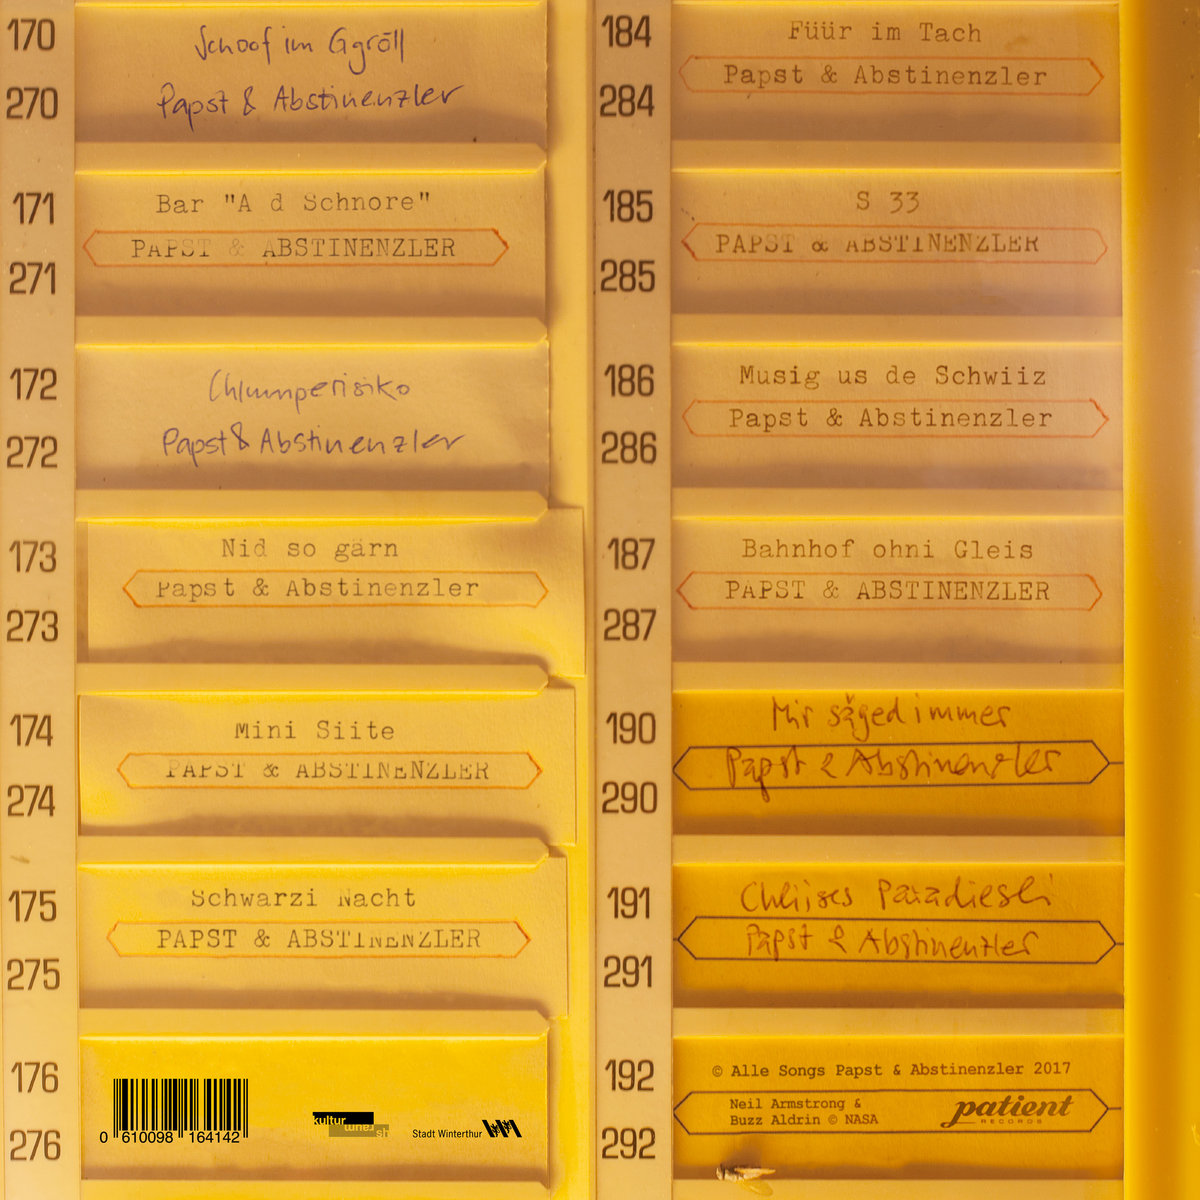 170
Schoof im Ggröll
270
Papst & Abstinenzler
171
Bar "A d Schnore"
PAPST & ABSTINENZLER
271
172
Chlumperisiko
272
Papst & Abstinenzler
173
Nid so gärn
Papst & Abstinenzler
273
174
Mini Siite
PAPST & ABSTINENZLER
274
175
Schwarzi Nacht
PAPST & ABSTINENZLER
275
176
0 610098 164142
kultur
raum
sh
Stadt Winterthur
276
184
Füür im Tach
Papst & Abstinenzler
284
185
S 33
PAPST & ABSTINENZLER
285
186
Musig us de Schwiiz
Papst & Abstinenzler
286
187
Bahnhof ohni Gleis
PAPST & ABSTINENZLER
287
190
Mir säged immer
Papst & Abstinenzler
290
191
Chliises Paradiesli
Papst & Abstinenzler
291
192
© Alle Songs Papst & Abstinenzler 2017
Neil Armstrong &
Buzz Aldrin © NASA
patient
RECORDS
292